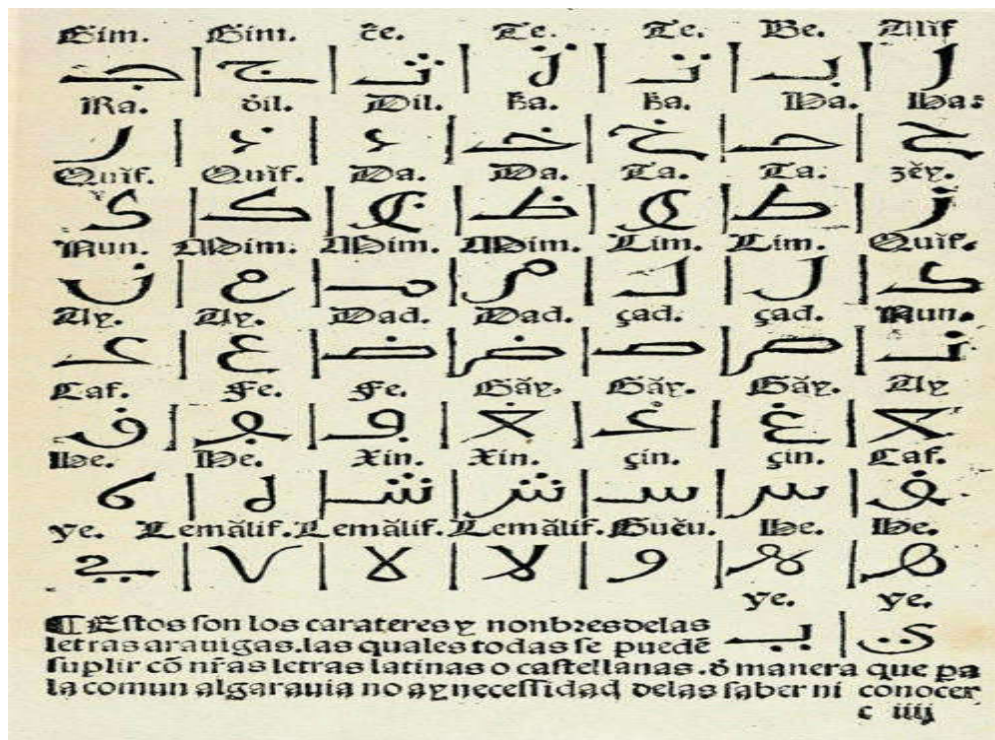 Gim. Gim. c̃e. Te. Te. Be. Alif
ا | بـ | تـ | ث | ثـ | ج | جـ
Ra. dil. Dil. ħa. ħa. Ha. Ha:
ح | حـ | خ | خـ | د | ذ | ر
Quĭf. Quĭf. Da. Da. Ta. Ta. zĕy.
ز | ط | ط | ظ | ظ | كـ | ك
Nun. Mim. Mim. Mim. Lim. Lim. Quĭf.
كـ | ل | لـ | م | مـ | م | ن
Ay. Ay. Dad. Dad. çad. çad. Nun.
نـ | ص | صـ | ض | ضـ | ع | عـ
Caf. Fe. Fe. Găy. Găy. Găy. Ay
ـعـ | غ | غـ | ـغـ | ڢـ | ڢ | ڧ
He. He. Xin. Xin. çin. çin. Caf.
ڧ | س | سـ | ش | شـ | ه | ه
ye. Lemălif. Lemălif. Lemălif. Guĕu. He. He.
هـ | ـهـ | و | لا | لا | لا | يـ
ye. ye.
ي | يـ
¶ Estos son los carateres y nonbres delas
letras arauigas. las quales todas se puedē
suplir cō nr̃as letras latinas o castellanas. d̃ manera que pa
la comun algarauia no ay necessidad delas saber ni conocer
c iiij